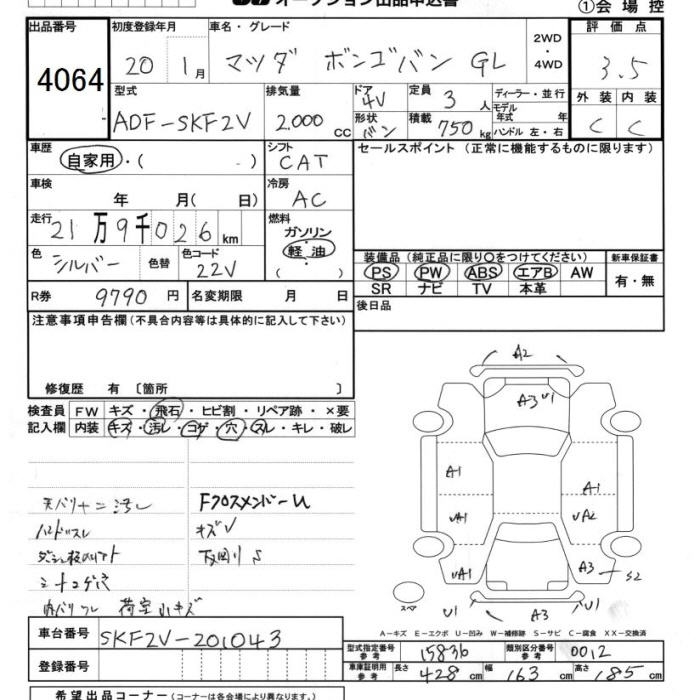 オークション出品申込書
①会場控
出品番号 初度登録年月 車名・グレード 2WD ・ 4WD 評価点
4064 20 1月 マツダ ボンゴバン GL 3.5
型式 排気量 ドア 4V 定員 3人 ディーラー・並行 外装 内装
ADF-SKF2V 2.000cc 形状 バン 積載 750kg モデル年式 年 ハンドル 左・右 C C
車歴 自家用・( ) シフト CAT セールスポイント (正常に機能するものに限ります)
車検 年 月( 日) 冷房 AC
走行 21万9千026km 燃料 ガソリン 軽油 ( )
色 シルバー 色替 色コード 22V
装備品(純正品に限り○をつけてください) 新車保証書
PS PW ABS エアB AW 有・無
SR ナビ TV 本革
R券 9790円 名変期限 月 日 後日品
注意事項申告欄(不具合内容等は具体的に記入して下さい)
修復歴 有〔箇所 〕
検査員 FW キズ・飛石・ヒビ割・リペア跡・×要
記入欄 内装 キズ・汚レ・コゲ・穴・スレ・キレ・破レ
キズV
内バリスレ 荷室小キズ
A2
A3 U1
A1 A1
UA1 UA2
UA1 A3 S2
U1 A3 U1
スペア
A-キズ E-エクボ U-凹み W-補修跡 S-サビ C-腐食 XX-交換済
車台番号 SKF2V-201043
登録番号
型式指定番号 参考 15836 類別区分番号 参考 0012
車庫証明用 参考 長さ 428cm 幅 163cm 高さ 185cm
希望出品コーナー(コーナーは各会場により異なります)